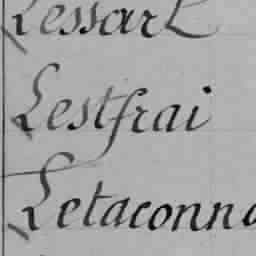 Lessart
Lestfrai
Letaconno